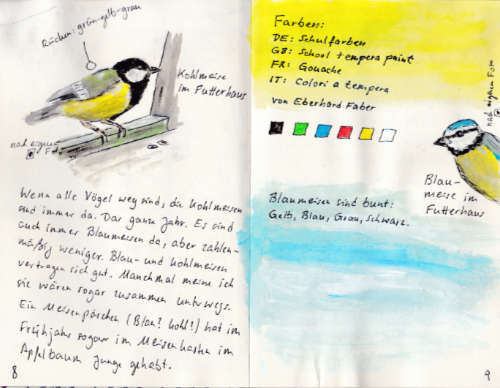 Rücken: grün-gelb-grau
Kohlmeise
im Futterhaus
nach eigenem
Foto
Wenn alle Vögel weg sind, die Kohlmeisen
sind immer da. Das ganze Jahr. Es sind
auch immer Blaumeisen da, aber zahlen-
mäßig weniger. Blau- und Kohlmeisen
vertragen sich gut. Manchmal meine ich
sie wären sogar zusammen unterwegs.
Ein Meisenpärchen (Blau? Kohl?) hat im
Frühjahr sogar im Meisenkasten im
Apfelbaum Junge gehabt.
8
Farben:
DE: Schulfarben
GB: School tempera paint
FR: Gouache
IT: Colori a tempera
von Eberhard Faber
nach eigenem Foto
Blau-
meise im
Futterhaus
Blaumeisen sind bunt:
Gelb, Blau, Grau, Schwarz.
9